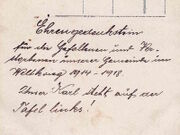 Ehrengedenkstein
für die Gefallenen und Ver-
storbenen unserer Gemeinde im
Weltkrieg 1914-1918.
Unser Karl steht auf der
Tafel links!